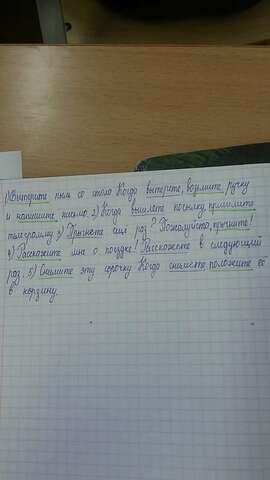 1) Вытрите пыль со стола. Когда вытерете, возьмите ручку
и напишите письмо. 2) Когда вышлете посылку, пришлите
телеграмму. 3) Прыгнете ещё раз? Пожалуйста, прыгните!
4) Расскажите мне о поездке! Расскажете в следующий
раз. 5) Снимите эту сорочку. Когда снимете, положите её
в корзину.